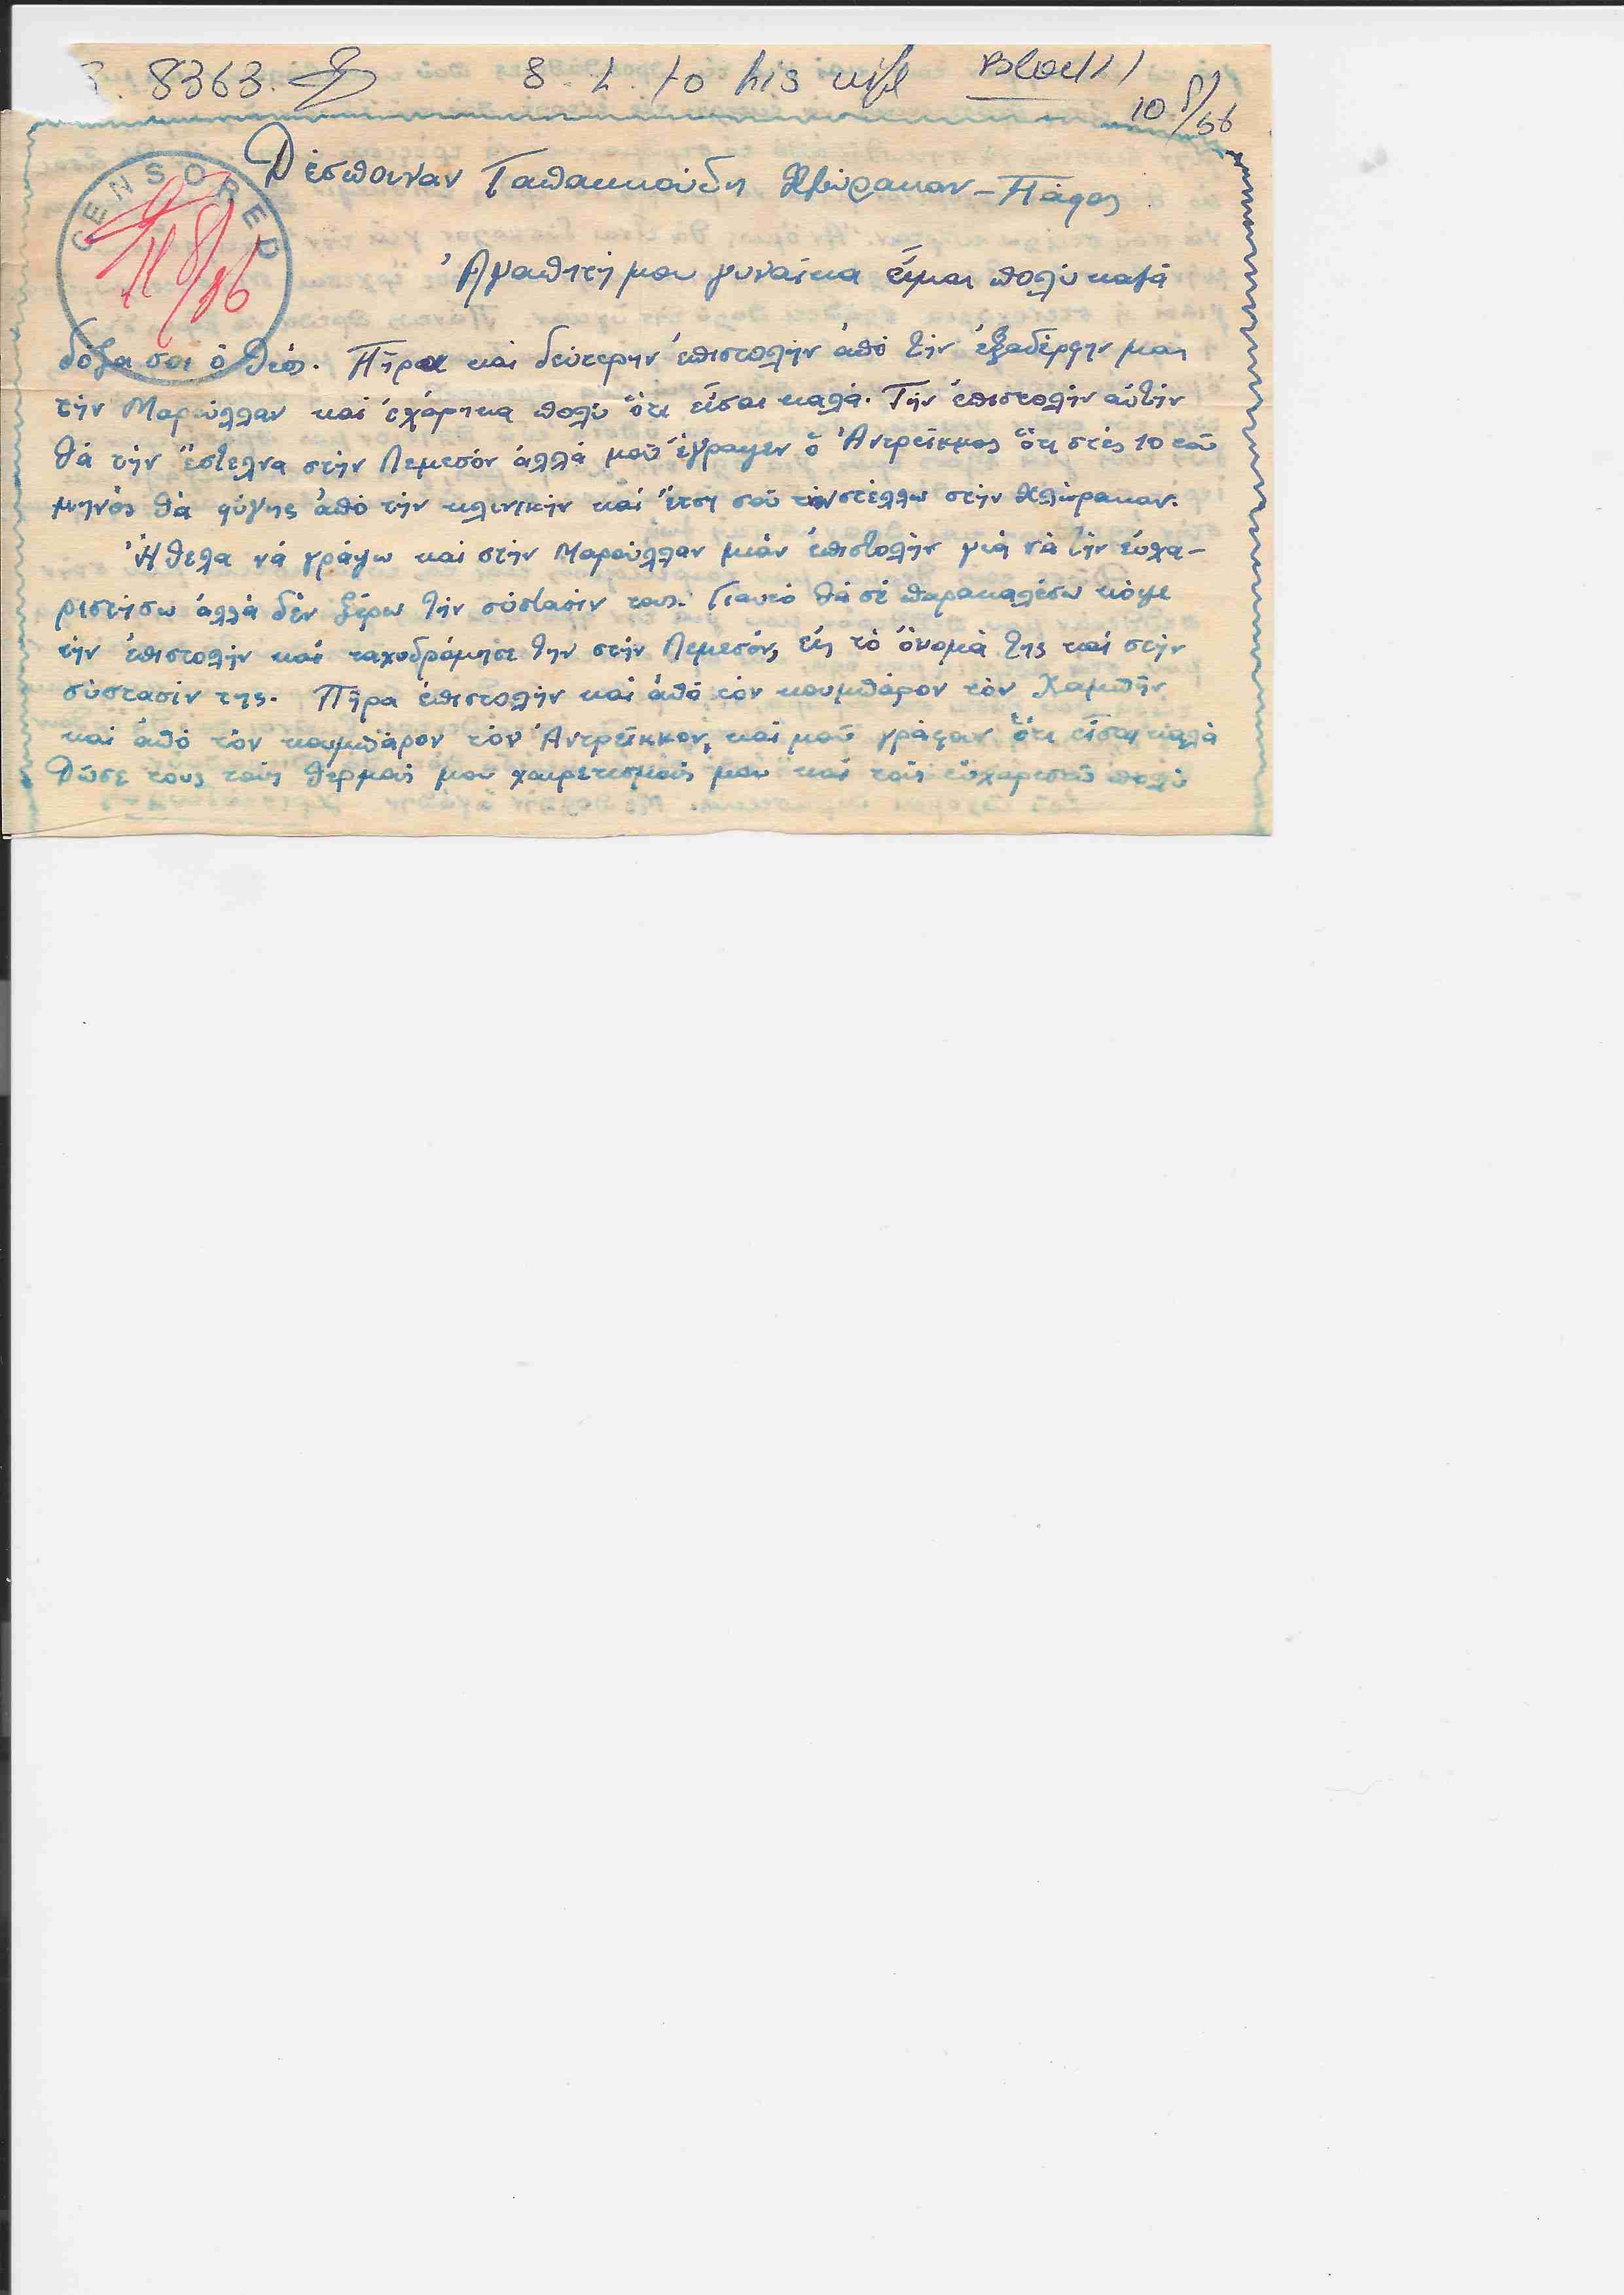 8363. 8. L. to his wife Block 11
10/8/56
CENSORED
11/8/56
Δέσποιναν Ταπακκούδη Χλώρακαν – Πάφος
Ἀγαπητή μου γυναίκα εἶμαι πολύ καλά
δόξα σοι ὁ Θεός. Πῆρα καί δεύτερην ἐπιστολήν ἀπό τήν ἐξαδέρφην μας
τήν Μαρούλλαν καί ἐχάρηκα πολύ ὅτι εἶσαι καλά. Τήν ἐπιστολήν αὐτήν
θά τήν ἔστελνα στήν Λεμεσόν ἀλλά μοῦ ἔγραψεν ὁ Ἀντρέικκος ὅτι στές 10 τοῦ
μηνός θά φύγης ἀπό τήν κλινικήν καί ἔτσι σοῦ τήν στέλλω στήν Χλώρακαν.
Ἤθελα νά γράψω καί στήν Μαρούλλαν μιάν ἐπιστολήν γιά νά τήν εὐχα-
ριστήσω ἀλλά δέν ξέρω τήν σύστασίν τους. Γιαυτό θά σέ παρακαλέσω κόψε
τήν ἐπιστολήν καί ταχυδρόμησέ την στήν Λεμεσόν, εἰς τό ὄνομά της καί στήν
σύστασίν της. Πῆρα ἐπιστολήν καί ἀπό τόν κουμπάρον τόν Χαμπῆν
καί ἀπό τόν κουμπάρον τόν Ἀντρέικκον, καί μοῦ γράφουν ὅτι εἶσαι καλά
Δῶσε τους τούς θερμούς μου χαιρετισμούς μου καί τούς εὐχαριστῶ πολύ